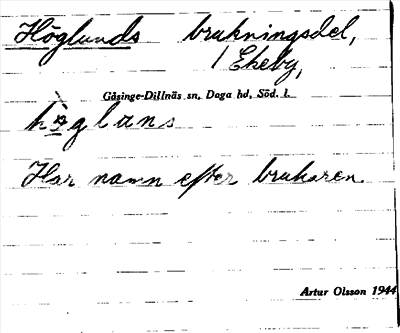 Höglunds brukningsdel,
/ Ekeby,
Gåsinge-Dillnäs sn, Daga hd, Söd. l.
Har namn efter brukaren.
Artur Olsson 1944